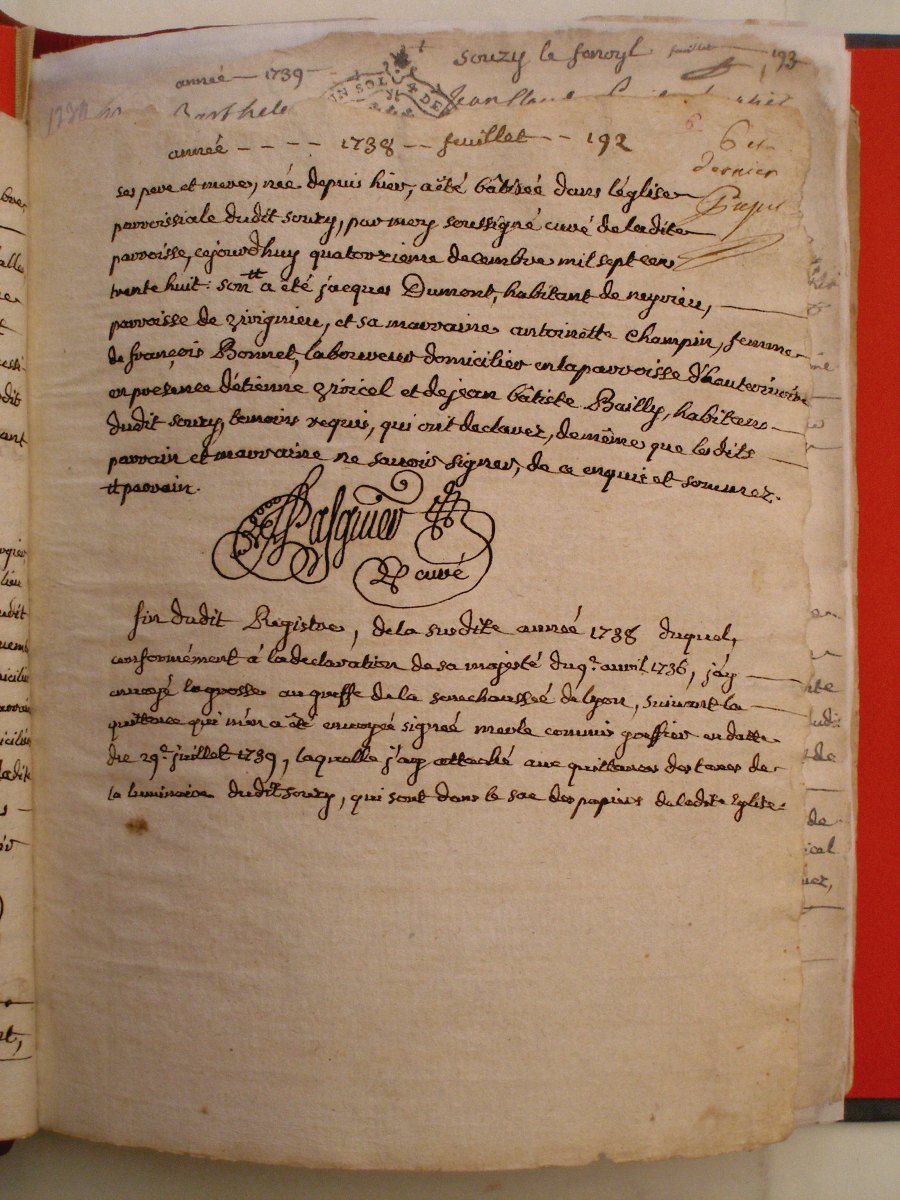 Souzy le feuillet 193
année — 1739
UN SOL 4 DE
année - - - - 1738 -- feuillet -- 192
6 et
dernier
ses pere et mere, née depuis hier, a été bâtisée dans l'église
parroissiale dudit Souzy, par moy soussigné curé de ladite
parroisse, cejourd'huy quatorzieme decembre mil sept cens
trente huit: son tt a été jacques Dumont, habitant de neyrieu,
parroisse de zivignieu, et sa marraine antoinette Champin, femme
de françois Bonnet, laboureur domicilier en la parroisse d'hauterivoire
en presence d'étienne zvicel et de jean bâtiste Bailly, habitans
dudit Souzy, temoins requis, qui ont declarez, de même que lesdits
parrain et marraine ne savoir signer, de ce enquis et sommez.
tt parrain.
Pasquier
curé
fin dudit Registre, de la susdite année 1738 duquel,
conformément à la declaration de sa majesté du 9e. avril 1736, j'ay
envoyé la grosse au greffe de la senechaussée de Lyon, suivant la
quittance qui m'en a été envoyée signée merle commis greffier en datte
du 29e. juillet 1739, laquelle j'ay attaché aux quittances des taxes de
la luminaire dudit Souzy, qui sont dans le sac des papiers de ladite Eglise.